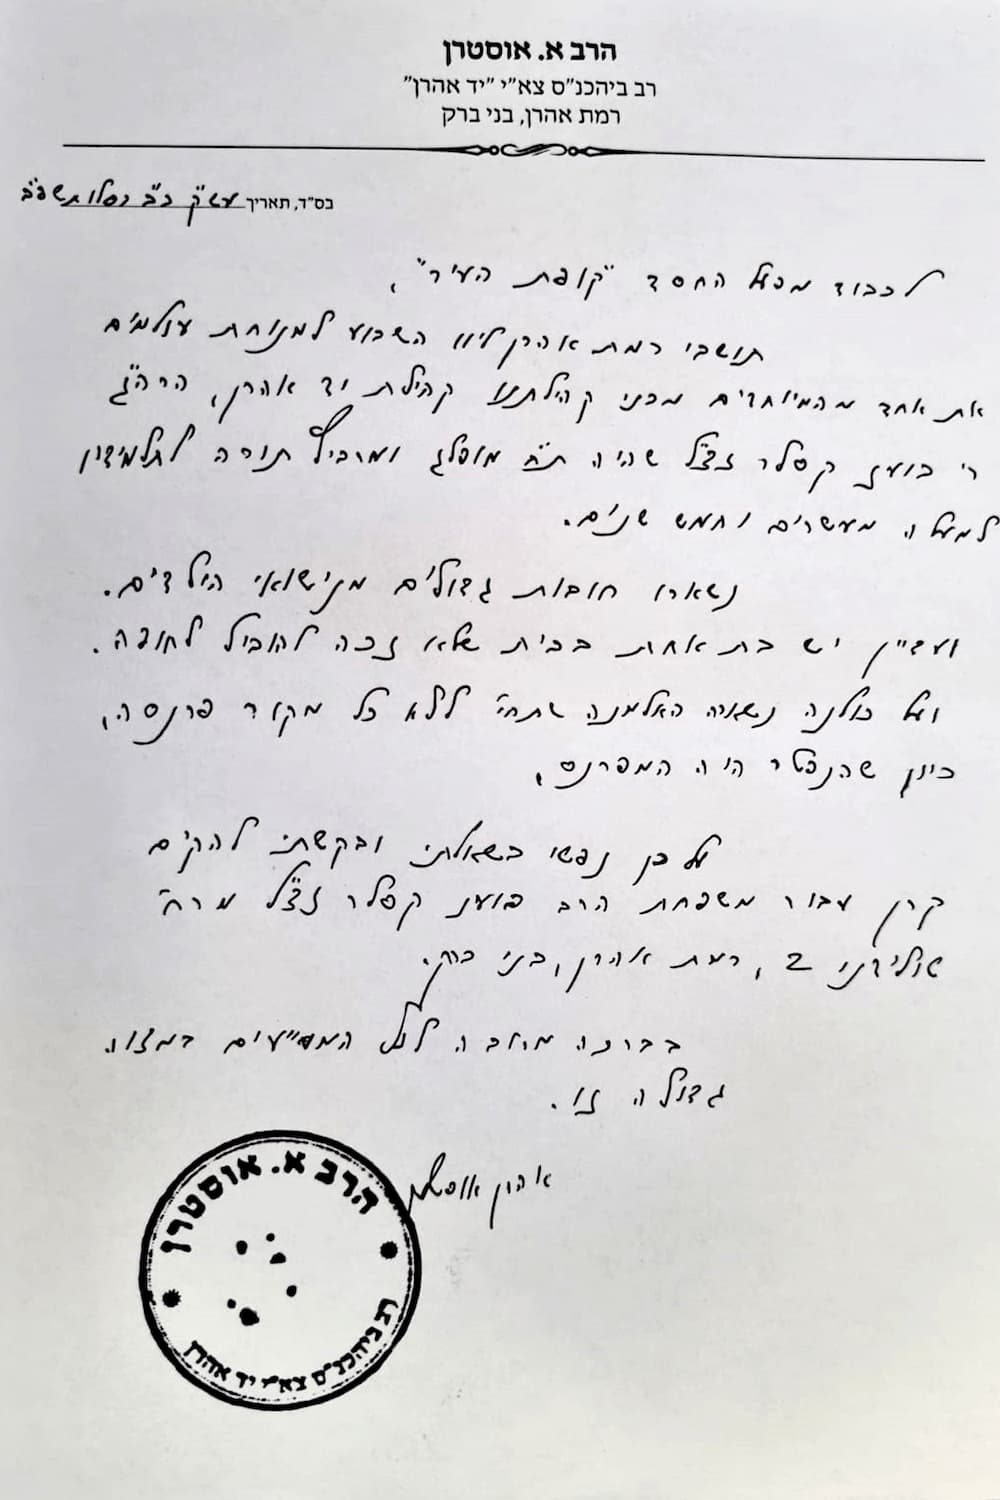 הרב א. אוסטרן
רב ביהכנ"ס צא"י "יד אהרן"
רמת אהרן, בני ברק
בס"ד, תאריך עש"ק כ"ב כסלו תשפ"ב
לכבוד מפעל החסד "קופת העיר",
תושבי רמת אהרן ליוו השבוע למנוחת עולמים
את אחד מהמיוחדים מבני קהילתנו קהילת יד אהרן, הרה"ג
ר' בועז קסלר זצ"ל שהיה ת"ח מופלג ומרביץ תורה לתלמידין
למעלה מעשרים וחמש שנים.
נשארו חובות גדולים מנישואי הילדים.
ועדיין יש בת אחת בבית שלא זכה להוביל לחופה.
ועל כולנה נשארה האלמנה שתחי' ללא כל מקור פרנסה,
כיון שהנפטר היה המפרנס,
על כן נפשי בשאלתי ובקשתי להקים
קרן עבור משפחת הרב בועז קסלר זצ"ל מרח'
2, רמת אהרן, בני ברק.
בברכה מרובה לכל המסייעים במצוה
גדולה זו.
אהרן אוסטרן
הרב א. אוסטרן
רב ביהכנ"ס צא"י יד אהרן